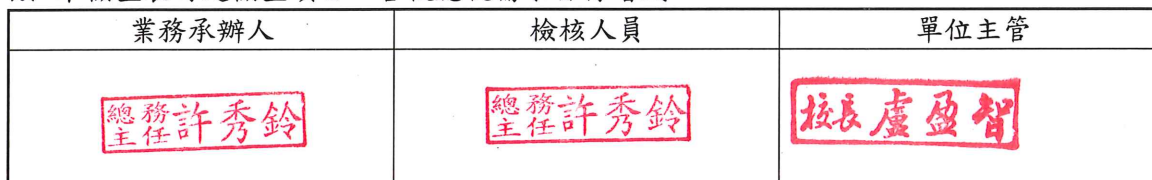 業務承辦人 檢核人員 單位主管
總務主任許秀鈴 總務主任許秀鈴 校長盧盈智